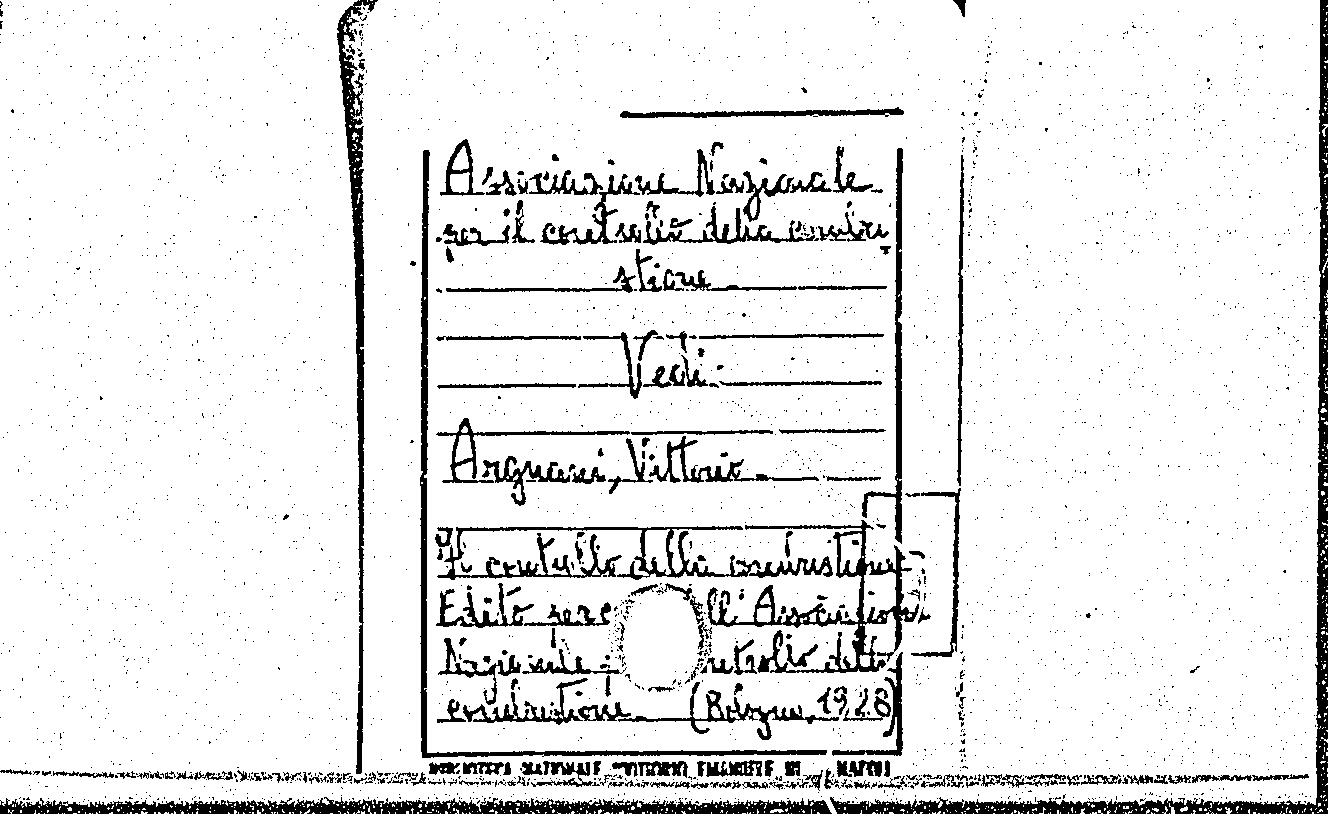 Associazione Nazionale
per il controllo della combu
stione
Vedi:
Argnani, Vittorio.
Il controllo della combustione
Edito per c ll' Associazion
Nazionale ntrollo della
combustione. (Bologna, 1928)
BIBLIOTECA NAZIONALE "VITTORIO EMANUELE III NAPOLI